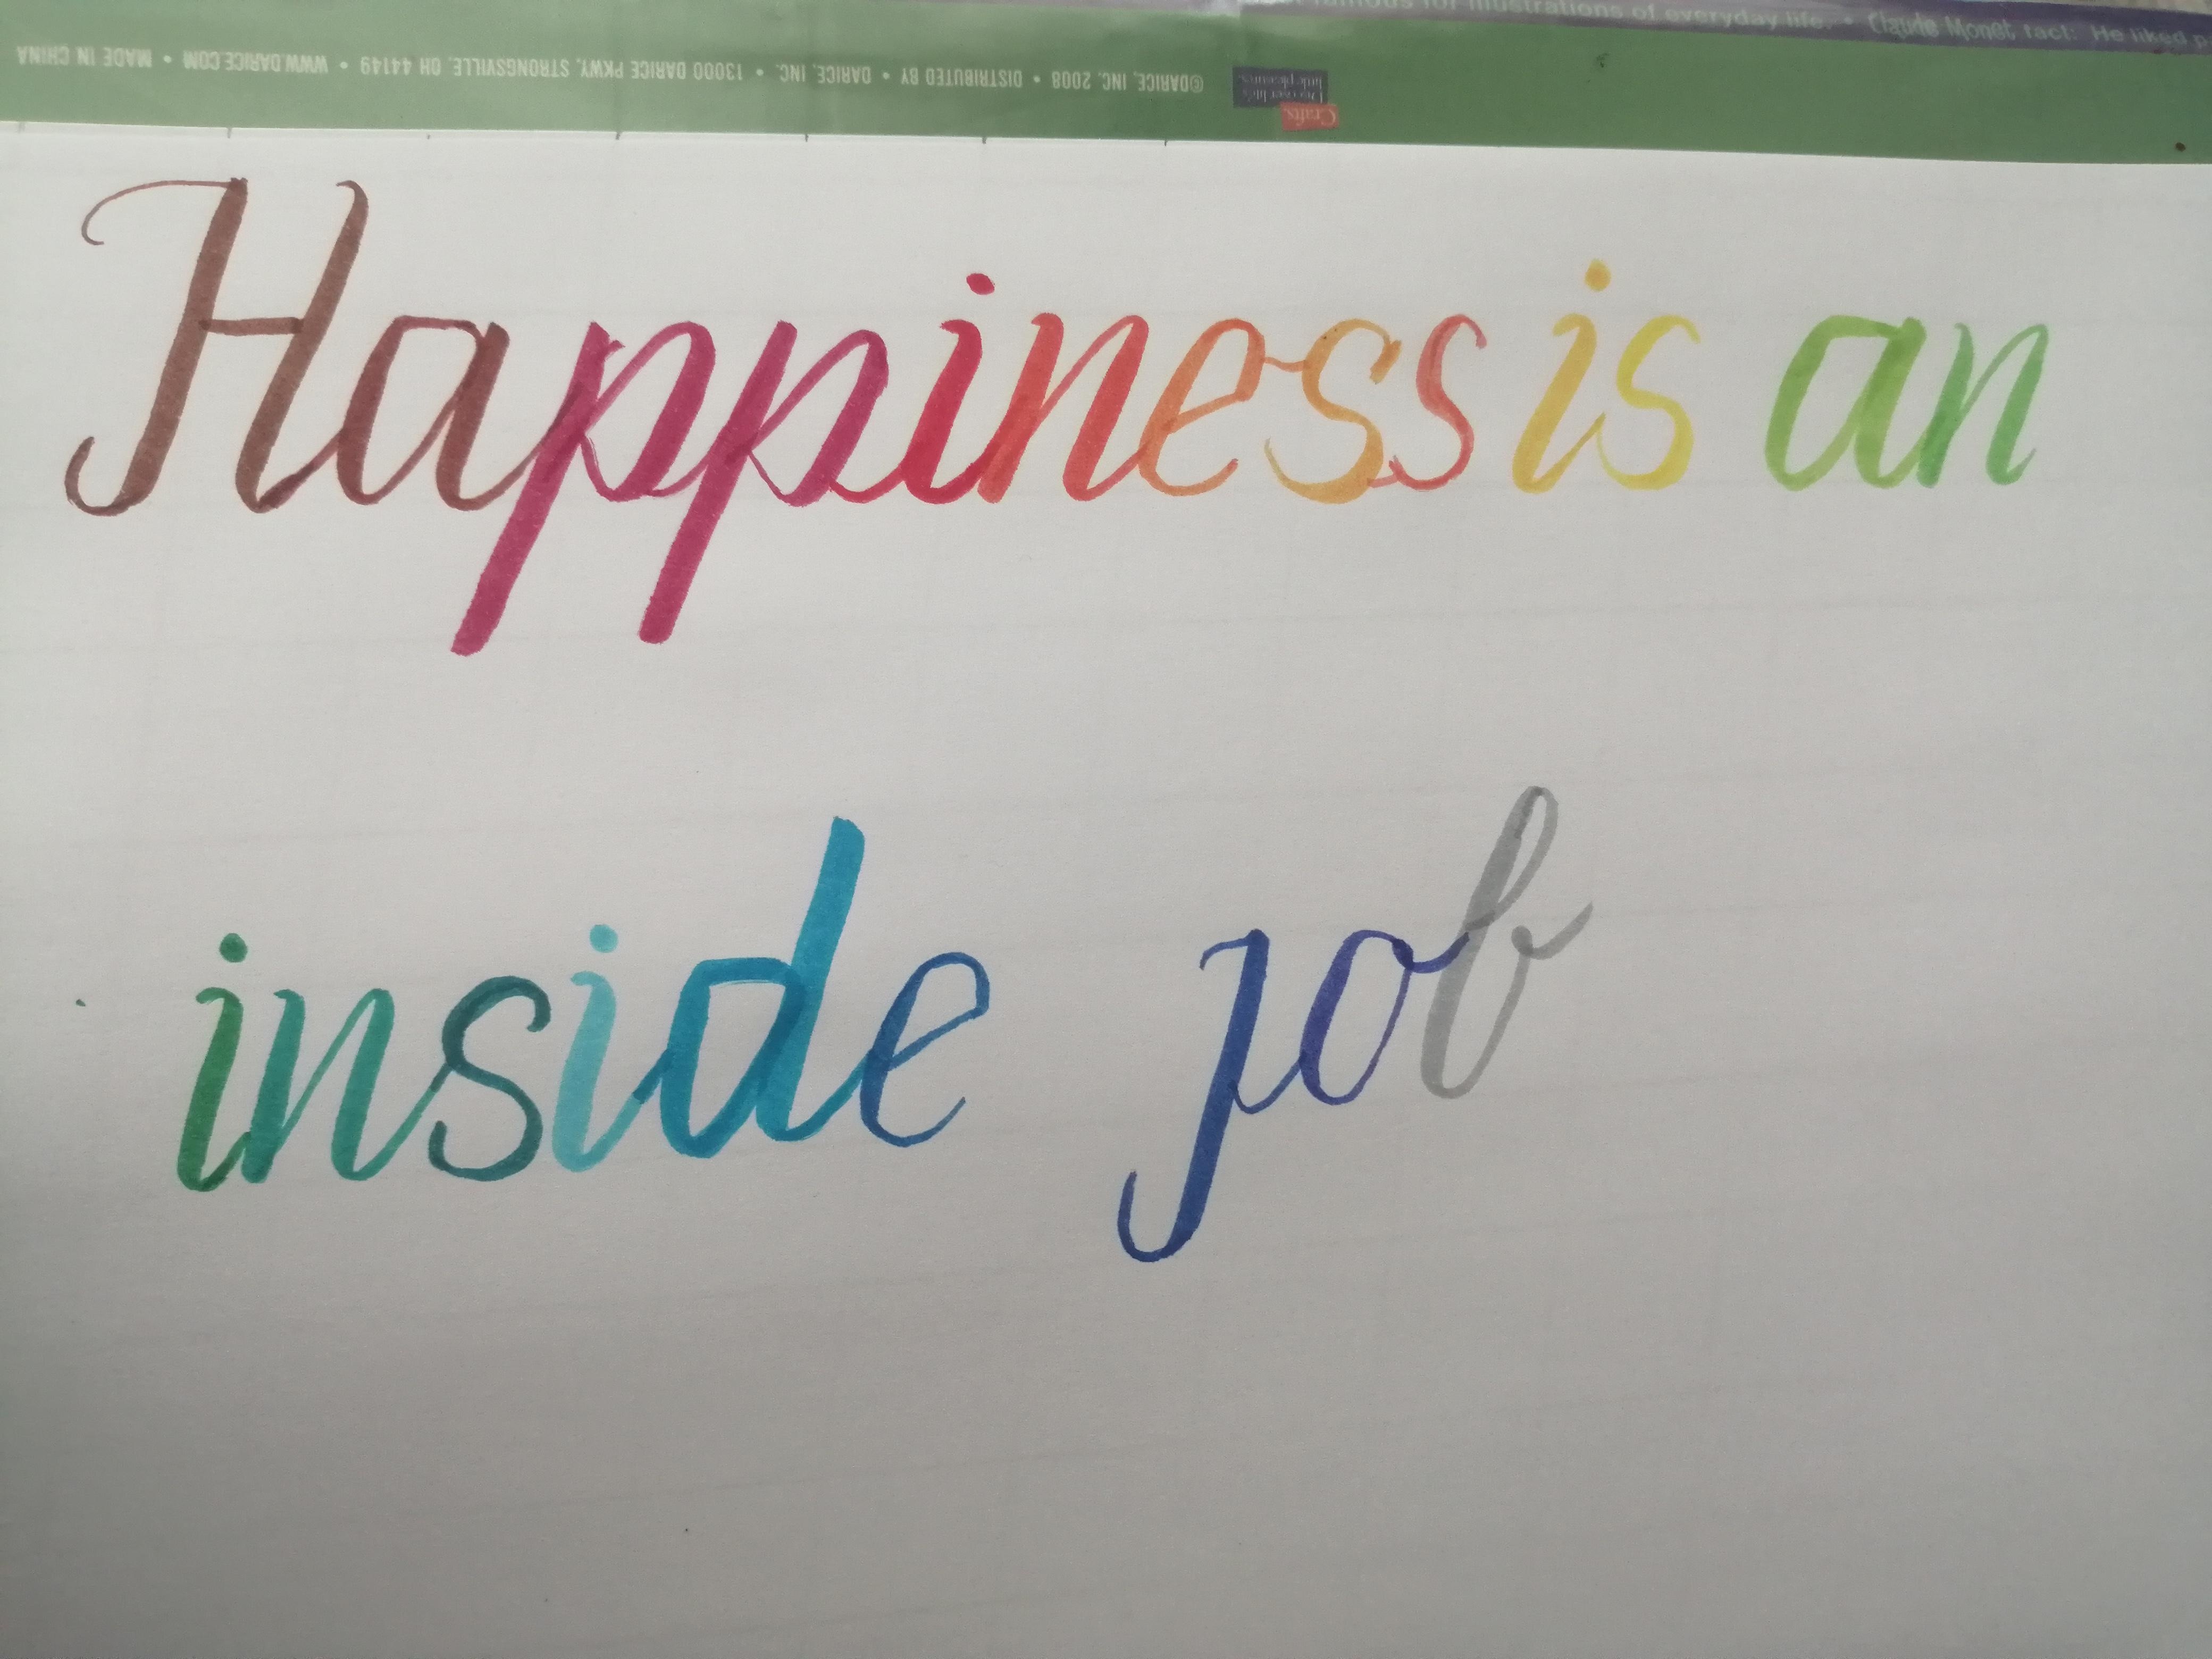 famous for illustrations of everyday life. • Claude Monet fact: He liked
©DARICE, INC. 2008 • DISTRIBUTED BY • DARICE, INC. • 13000 DARICE PKWY. STRONGSVILLE, OH 44149 • WWW.DARICE.COM • MADE IN CHINA
Crafts,
Discover life's
little pleasures.
Happiness is an
inside job